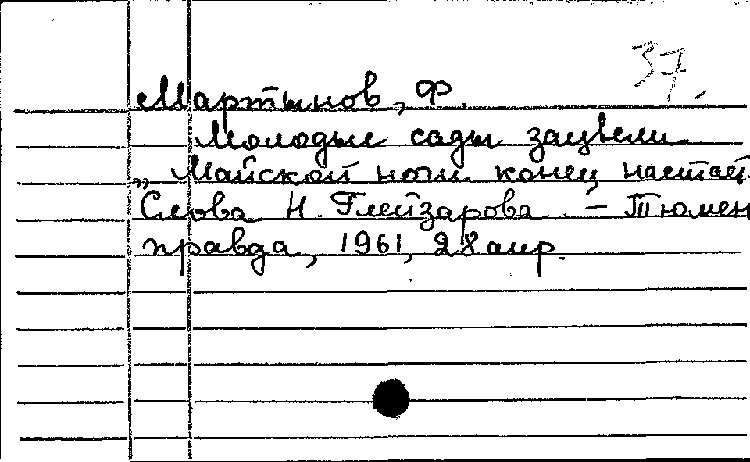 37.
Мартынов, Ф.
Молодые сады зацвели
„Майской ночи конец настает
Слова Н. Глейзарова. – Тюмен
правда, 1961, 28 апр.